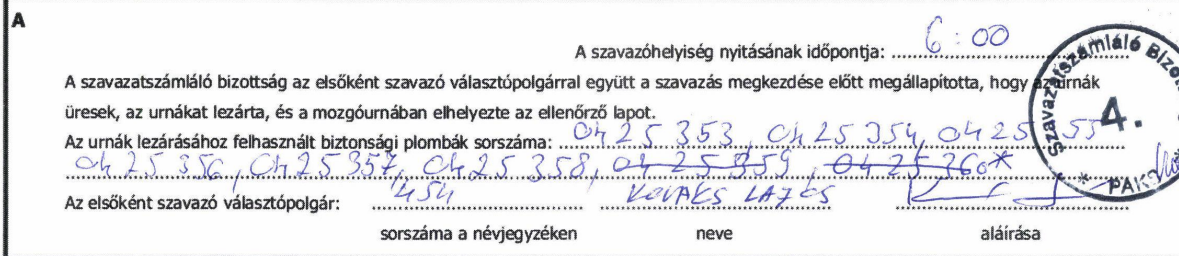 A
A szavazóhelyiség nyitásának időpontja: 6:00
A szavazatszámláló bizottság az elsőként szavazó választópolgárral együtt a szavazás megkezdése előtt megállapította, hogy az urnák
üresek, az urnákat lezárta, és a mozgóurnában elhelyezte az ellenőrző lapot.
Az urnák lezárásához felhasznált biztonsági plombák sorszáma: 0425353, 0425354, 0425355
0425356, 0425357, 0425358, 0425359, 0425360*
Az elsőként szavazó választópolgár: 454 KOVÁCS LAJOS
sorszáma a névjegyzéken neve aláírása
Szavazatszámláló Bizot
4.
* PAKS